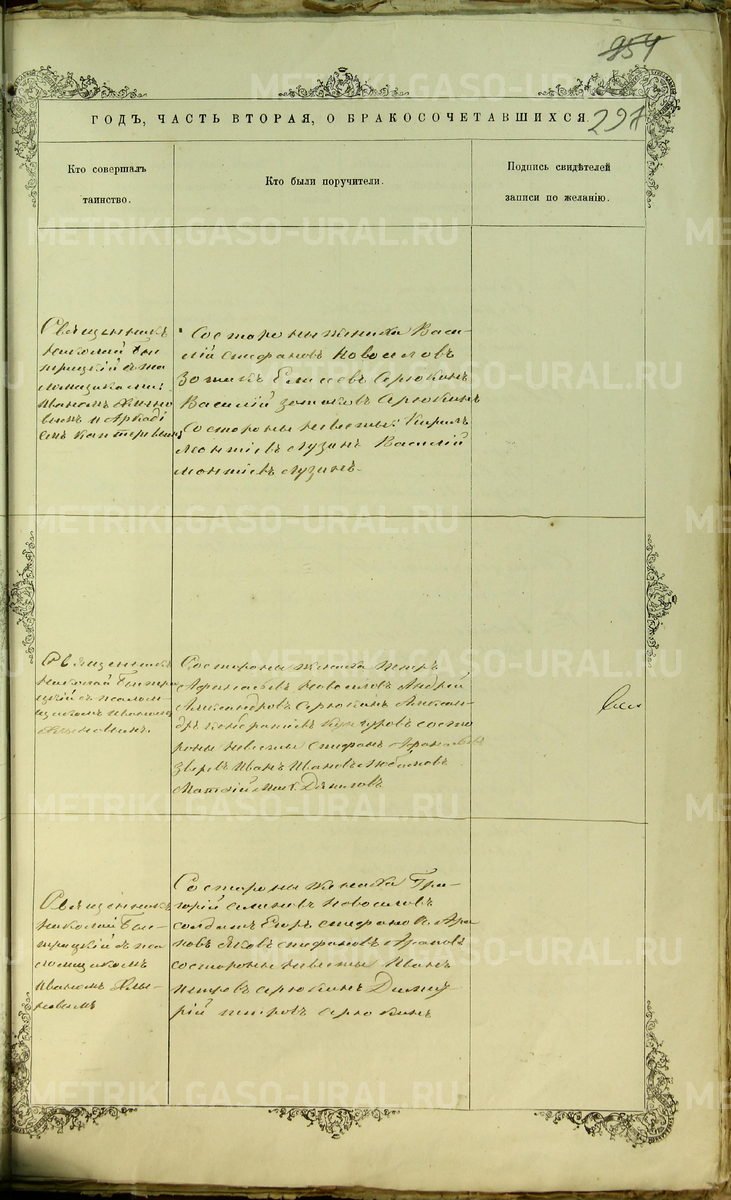 854
297
ГОДЪ, ЧАСТЬ ВТОРАЯ, О БРАКОСОЧЕТАВШИХСЯ.
Кто совершалъ
таинство.
Кто были поручители.
Подпись свидѣтелей
записи по желанію.
Священникъ
Николай
съ пса
ломщиками
Иваномъ
и Аркаді
емъ
Со стороны жениха Васи-
лій Стефановъ Новоселовъ
Зотикъ Елисеевъ Серюкинъ
Василій Зотиковъ Серюкинъ
Со стороны невесты: Кирилъ
Леонтіевъ Лузинъ Василій
Леонтіевъ Лузинъ.
Священникъ
Николай
съ псалом-
щикомъ Иваномъ
Со стороны жениха Петръ
Афанасьевъ Новоселовъ Андрей
Александровъ Серюкинъ Алексан-
дръ Кунгуровъ со сто
роны невесты Стефанъ
Зверевъ Иванъ Ивановъ Любимовъ
Матфій Даниловъ
Священникъ
Николай
съ пса
ломщикомъ
Иваномъ
Со стороны жениха Гри-
горій Новоселовъ
солдатъ Егоръ Стефановъ Ара
повъ Яковъ Стефановъ Араповъ
со стороны невесты Иванъ
Петровъ Серюкинъ Димит
рій Петровъ Серюкинъ
METRIKI.GASO-URAL.RU